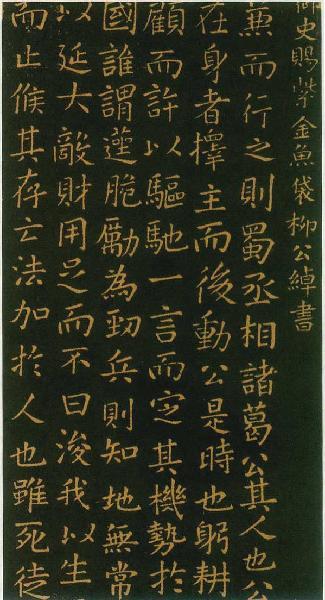 御史賜紫金魚袋柳公綽書
兼而行之則蜀丞相諸葛公其人也公
在身者擇主而後動公是時也躬耕
顧而許以驅馳一言而定其機勢於
國誰謂蓮脆勵為勁兵則知地無常
以延大敵財用足而不曰浚我以生
而止候其存亡法加於人也雖死徒